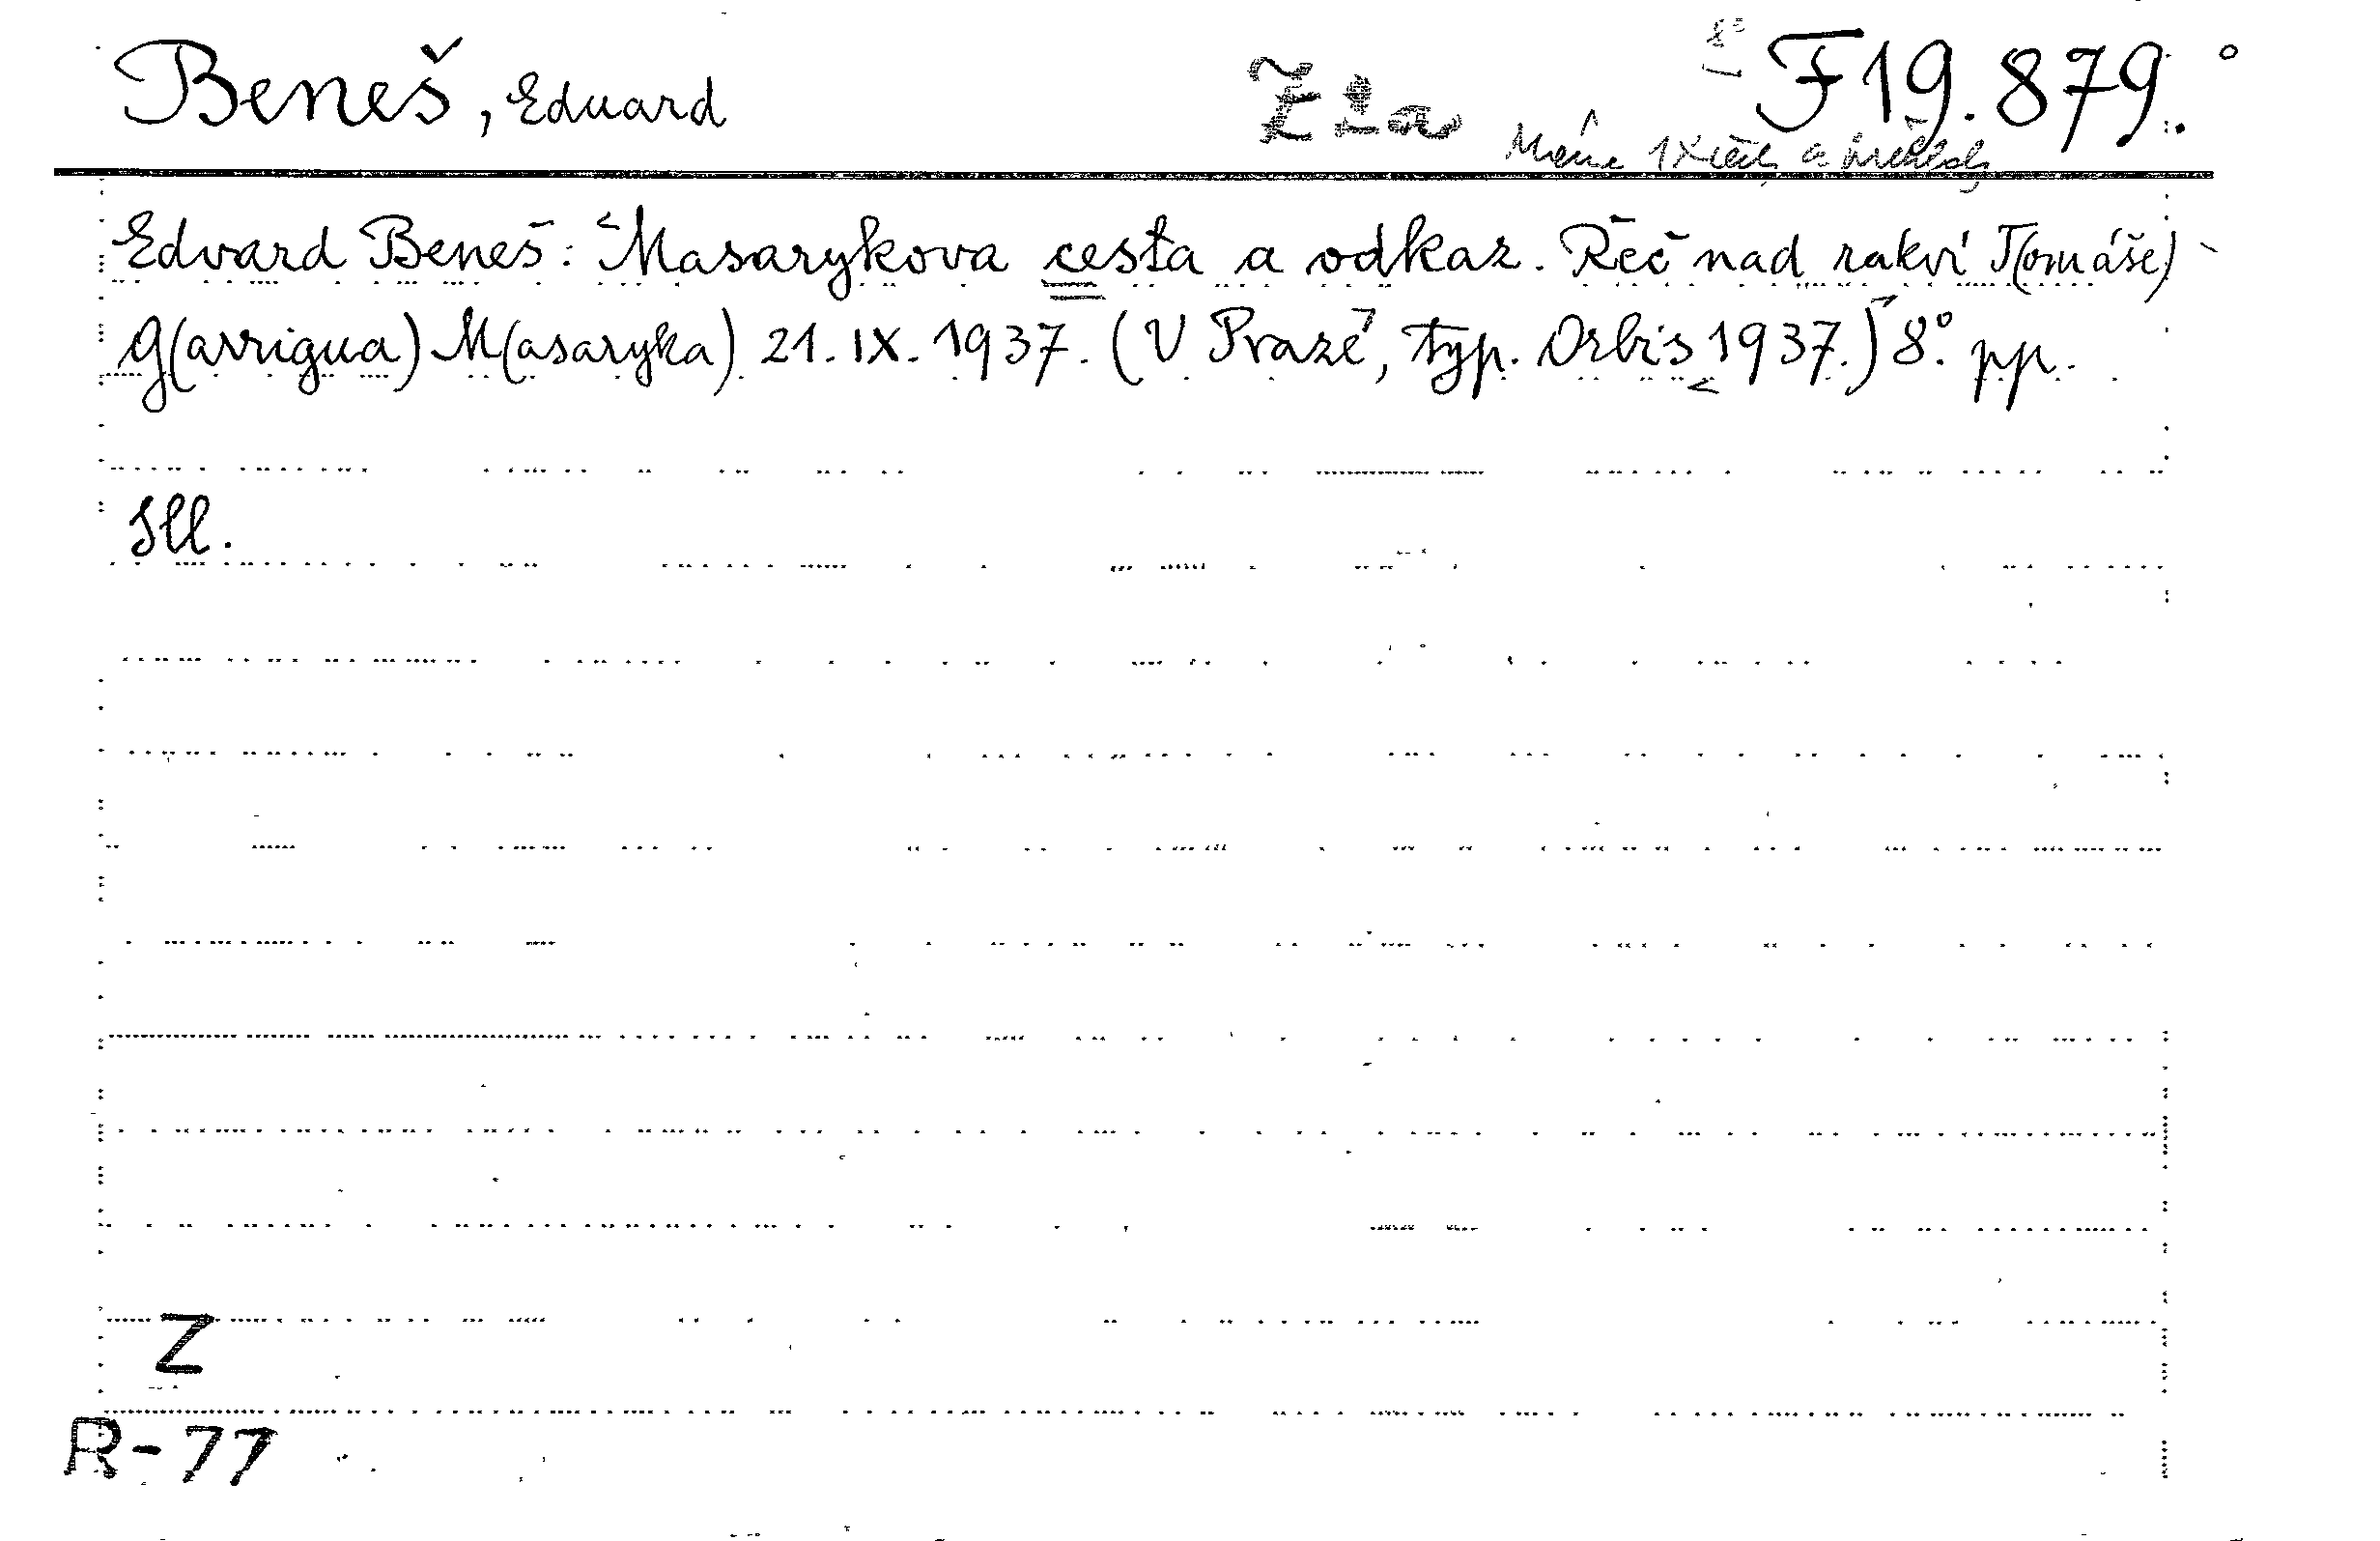 Beneš, Eduard F 19.879.
Z 2a
8°
Máme 1x
Edvard Beneš: Masarykova cesta a odkaz. Řeč nad rakví T(omáše)
G(arrigua) M(asaryka) 21. IX. 1937. (V Praze, typ. Orbis 1937.) 8°. pp.
Ill.
Z
R-77